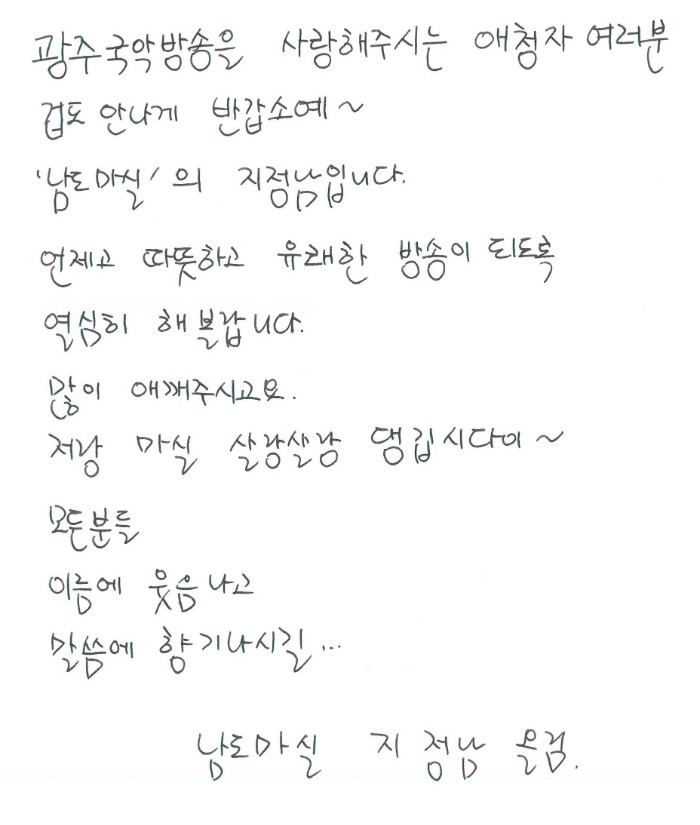 광주국악방송을 사랑해주시는 애청자 여러분
겁도 안나게 반갑소예~
'남도마실'의 지정남입니다.
언제고 따뜻하고 유쾌한 방송이 되도록
열심히 해볼랍니다.
많이 애껴주시고요.
저랑 마실 살랑살랑 댕깁시다이~
모든분들
이름에 웃음나고
말씀에 향기나시길...
남도마실 지정남 올림.